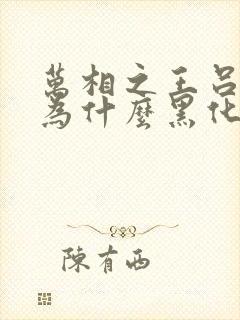 萬相之王呂
為什麼黑化
陳有西